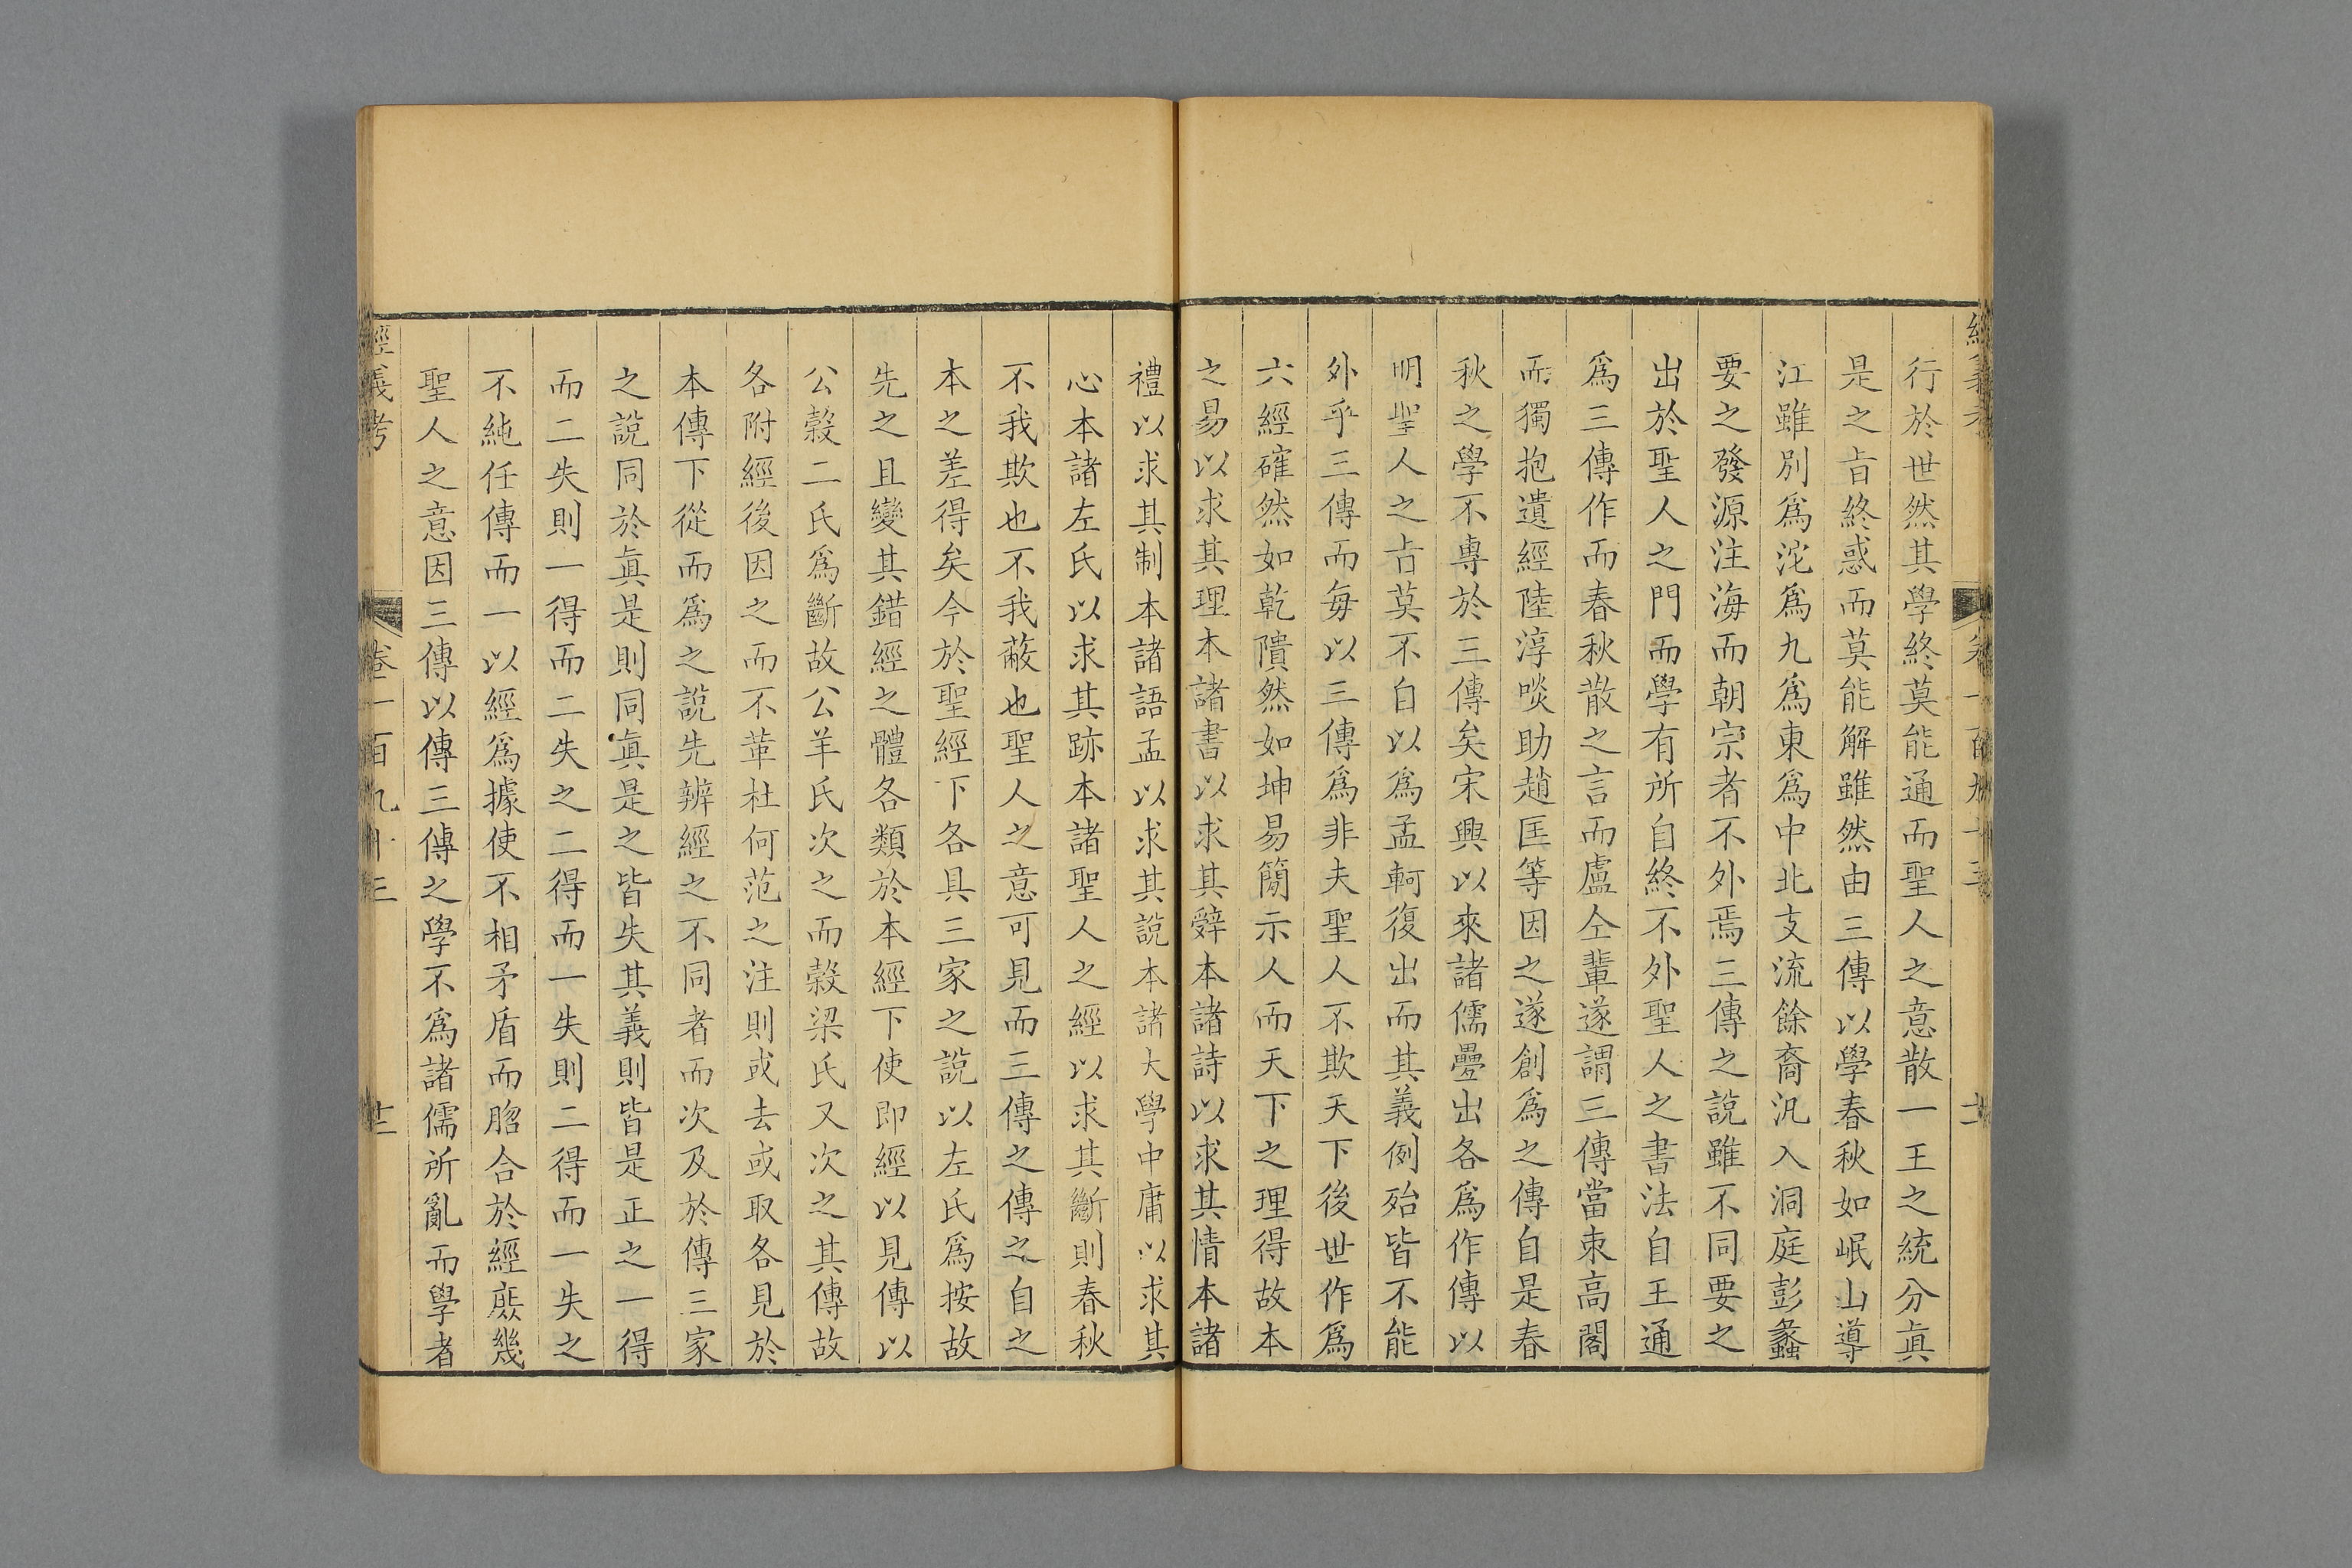 行於世然其學終莫能通而聖人之意散一王之統分眞
是之㫖終惑而莫能解雖然由三傳以學春秋如岷山導
江雖別爲沱爲九爲東爲中北支流餘裔汎入洞庭彭蠡
要之發源注海而朝宗者不外焉三傳之說雖不同要之
出於聖人之門而學有所自終不外聖人之書法自王通
爲三傳作而春秋散之言而盧仝輩遂謂三傳當束高閣
而獨抱遺經陸淳啖助趙匡等因之遂創爲之傳自是春
秋之學不專於三傳矣宋興以來諸儒疊出各爲作傳以
明聖人之㫖莫不自以爲孟軻復出而其義例殆皆不能
外乎三傳而每以三傳爲非夫聖人不欺天下後世作爲
六經確然如乾隤然如坤易簡示人而天下之理得故本
之易以求其理本諸書以求其辭本諸詩以求其情本諸
禮以求其制本諸語孟以求其說本諸大學中庸以求其
心本諸左氏以求其跡本諸聖人之經以求其斷則春秋
不我欺也不我蔽也聖人之意可見而三傳之傳之自之
本之差得矣今於聖經下各具三家之說以左氏爲按故
先之且變其錯經之體各類於本經下使即經以見傳以
公穀二氏爲斷故公羊氏次之而穀梁氏又次之其傳故
各附經後因之而不革杜何范之注則或去或取各見於
本傳下從而爲之說先辨經之不同者而次及於傳三家
之說同於眞是則同眞是之皆失其義則皆是正之一得
而二失則一得而二失之二得而一失則二得而一失之
不純任傳而一以經爲據使不相矛盾而脗合於經庶幾
聖人之意因三傳以傳三傳之學不爲諸儒所亂而學者
經義考
卷一百九十三
十二